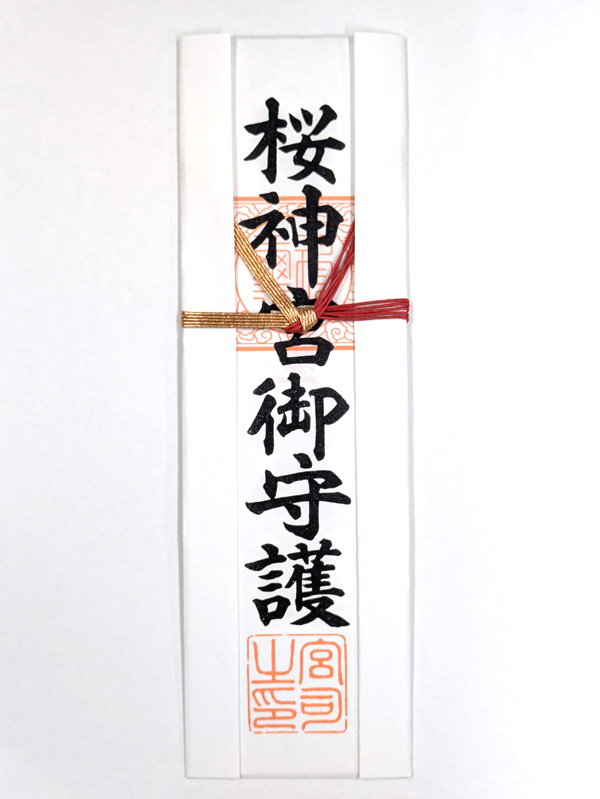 桜神宮御守護
宮司之印